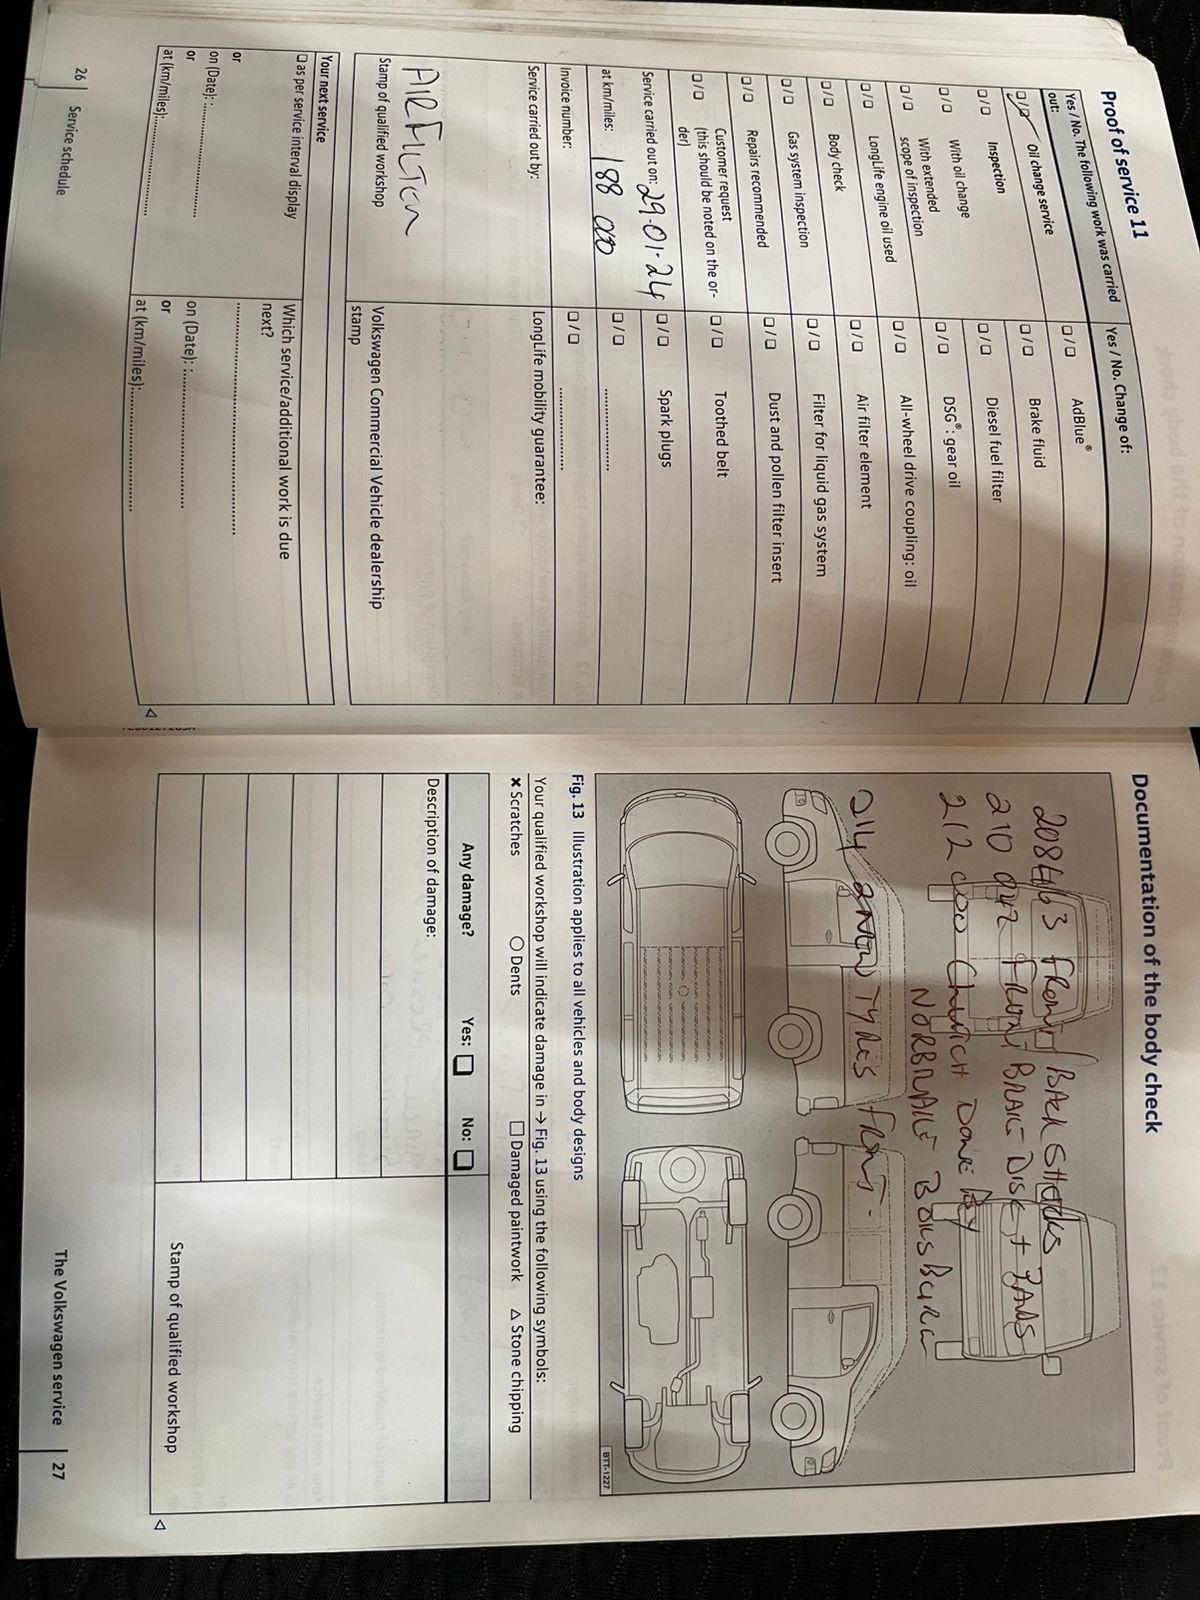 Proof of service 11
Yes / No. The following work was carried out:
Yes / No. Change of:
☐/☑ Oil change service
☐/☐ Inspection
☐/☐ With oil change
☐/☐ With extended scope of inspection
☐/☐ LongLife engine oil used
☐/☐ Body check
☐/☐ Gas system inspection
☐/☐ Repairs recommended
☐/☐ Customer request (this should be noted on the or-
der)
Service carried out on: 29.01.24
at km/miles: 188 000
Invoice number:
☐/☐ AdBlue®
☐/☐ Brake fluid
☐/☐ Diesel fuel filter
☐/☐ DSG®: gear oil
☐/☐ All-wheel drive coupling: oil
☐/☐ Air filter element
☐/☐ Filter for liquid gas system
☐/☐ Dust and pollen filter insert
☐/☐ Toothed belt
☐/☐ Spark plugs
☐/☐ ..............
☐/☐ ..............
Service carried out by:
LongLife mobility guarantee:
AIR FILTER
Stamp of qualified workshop
Volkswagen Commercial Vehicle dealership
stamp
Your next service
☐ as per service interval display
or
on (Date): ....................
or
at (km/miles): ....................
Which service/additional work is due
next?
........................................
on (Date): ....................
or
at (km/miles): ....................
26 | Service schedule
Documentation of the body check
208463 FRONT BACK SHOCKS
210 FRONT BRAKE DISC + PADS
212 000 DONE BY
214 NEW TYRES FRONT.
BTT-1227
Fig. 13 Illustration applies to all vehicles and body designs
Your qualified workshop will indicate damage in → Fig. 13 using the following symbols:
✖ Scratches ○ Dents □ Damaged paintwork △ Stone chipping
Any damage? Yes: ☐ No: ☐
Description of damage:
Stamp of qualified workshop
The Volkswagen service | 27